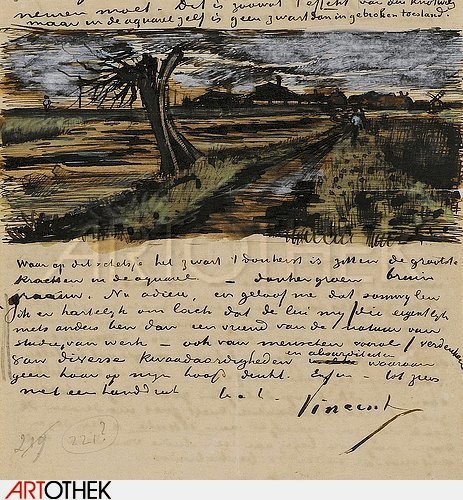 nemen moet. Dit is zoowat 't effekt van den knotwilg
maar in de aquarel zelf is geen zwart dan in gebroken toestand.
Waar op dit schetsje het zwart 't donkerst is zitten de grootste
krachten in de aquarel — donker groen bruin
graauw. Nu adieu, en geloof me dat somwijlen
ik er hartelijk om lach dat de lui mij die eigenlijk
niets anders ben dan een vriend van de natuur van
studie, van werk — ook van menschen vooral verdenken
van diverse kwaadaardigheden en absurditeiten waaraan
geen haar op mijn hoofd denkt. Enfin — tot ziens
met een handdruk t. à. t. Vincent
221?
ARTOTHEK